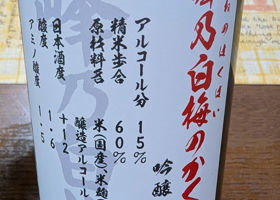 乃白梅のかく
吟醸
アルコール分 15%
精米歩合 60%
原材料名 米(国産)米麹
醸造アルコール
日本酒度 +12
酸度 1.6
アミノ酸度 1.5